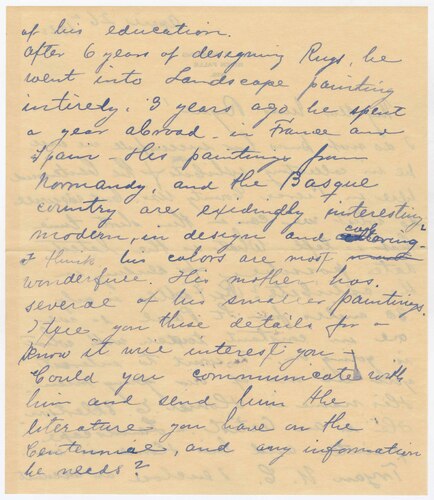 of his education.
After 6 years of designing Rugs, he
went into Landscape painting
intirely. 3 years ago he spent
a year abroad - in France and
Spain - His paintings from
Normandy, and the Basque
country are exidingly interesting,
modern, in design and coloring -
I think his colors are most
wonderful. His mother has
several of his smaller paintings.
I give you these details for I
know it will interest you -
Could you communicate with
him and send him the
literature you have on the
Centennial, and any information
he needs?